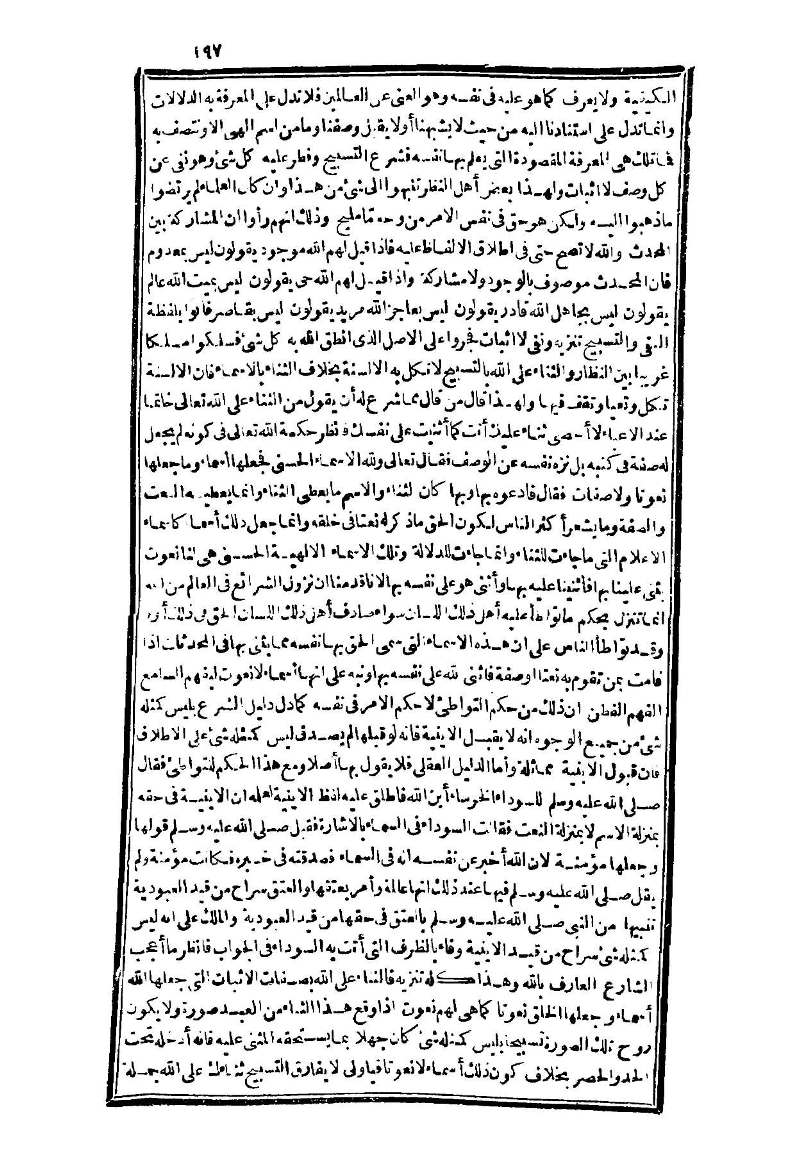 ١٩٧
الكيفية ولا يعرف كما هو عليه في نفسه وهو الغنى عن العالمين فلا تدل على المعرفة به الدلالات
وانما تدل على استنادنا اليه من حيث لا يشبهنا أولا يقبل وصفنا وما من اسم الهى الا ونتصف به
فما تلك هى المعرفة المقصودة التى يعلم بها نفسه فشرع التسبيح وفطر عليه كل شئ وهو نفى عن
كل وصف لا اثبات ولهذا بعض أهل النظر تنبهوا الى شئ من هذا وان كان العلماء لم يرتضوا
ما ذهبوا اليه ولكن هو حق في نفس الامر من وجه ما مليح وذلك انهم رأوا ان المشاركة بين
المحدث والله لا تصح حتى في اطلاق الالفاظ عليه فاذا قيل لهم الله موجود يقولون ليس بمعدوم
فان المحدث موصوف بالوجود ولا مشاركة واذا قيل لهم الله حى يقولون ليس بميت الله عالم
يقولون ليس بجاهل الله قادر يقولون ليس بعاجز الله مريد يقولون ليس بقاصر فأتوا بلفظة
النفى والتسبيح تنزيه ونفى لا اثبات فجروا على الاصل الذى انطق الله به كل شئ فسلكوا مسلكا
غريبا بين النظار والثناء على الله بالتسبيح لا تكل به الالسنة بخلاف الثناء بالاسماء فان الالسنة
تكل وتعيا وتقف فيها ولهذا قال من قال مما شرع له أن يقول من الثناء على الله تعالى خاتما
عند الاعياء لا أحصى ثناء عليك أنت كما أثنيت على نفسك فانظر حكمة الله تعالى في كونه لم يجعل
له صفة في كتبه بل نزه نفسه عن الوصف فقال تعالى ولله الاسماء الحسنى فجعلها أسماء وما جعلها
نعوتا ولا صفات فقال فادعوه بها وبها كان الثناء والاسم ما يعطى الثناء وانما يعطيه النعت
والصفة وما يشعر أكثر الناس لكون الحق ما ذكر له نعتا في خلقه وانما جعل ذلك أسماء كاسماء
الاعلام التى ما جاءت للثناء وانما جاءت للدلالة وتلك الاسماء الالهية الحسنى هى لنا نعوت
يثنى علينا بها فأثنينا عليه بها وأثنى هو على نفسه بها لانا قدمنا ان نزول الشرائع في العالم من الله
انما تنزل بحكم ما تواطأ عليه أهل ذلك اللسان سواء صادف أهل ذلك اللسان الحق في ذلك أولا
وقد تواطأ الناس على ان هذه الاسماء التى سمى الحق بها نفسه مما يثنى بها في المحدثات اذا
قامت بمن تقوم به نعتا أو صفة فأثنى الله على نفسه بها ونبه على انها أسماء لا نعوت ليفهم السامع
الفهم الفطن ان ذلك من حكم التواطئ لا حكم الامر في نفسه كما دل دليل الشرع بليس كمثله
شئ من جميع الوجوه انه لا يقبل الاينية فانه لو قبلها لم يصدق ليس كمثله شئ على الاطلاق
فان قبول الاينية مماثلة وأما الدليل العقلى فلا يقول بها أصلا ومع هذا الحكم للتواطئ فقال
صلى الله عليه وسلم للسوداء الخرساء أين الله فاطلق عليه لفظ الاينية لعلمه ان الاينية في حقه
بمنزلة الاسم لا بمنزلة النعت فقالت السوداء في السماء بالاشارة فقبل صلى الله عليه وسلم قولها
وجعلها مؤمنة لان الله أخبر عن نفسه انه في السماء فصدقته في خبره فكانت مؤمنة ولم
يقل صلى الله عليه وسلم فيها عند ذلك انها عالمة وأمر بعتقها والعتق سراح من قيد العبودية
تنبيها من النبي صلى الله عليه وسلم بالعتق في حقها من قيد العبودية والملك على انه ليس
كمثله شئ سراح من قيد الاينية وفاء بالظرف التى أتت به السوداء في الجواب فانظر ما أعجب
الشارع العارف بالله وهذا كله تنزيه فالثناء على الله بصفات الاثبات التى جعلها الله
أسماء وجعلها الخلق نعوتا كما هى لهم نعوت اذا وقع هذا الثناء من العبد صورة ولا يكون
روح تلك الصورة تسبيحا بليس كمثله شئ كان جهلا بما يستحقه المثنى عليه فانه أدخله تحت
الحد والحصر بخلاف كون ذلك أسماء لا نعوتا فيا ولى لا يفارق التسبيح ثناءك على الله جملة